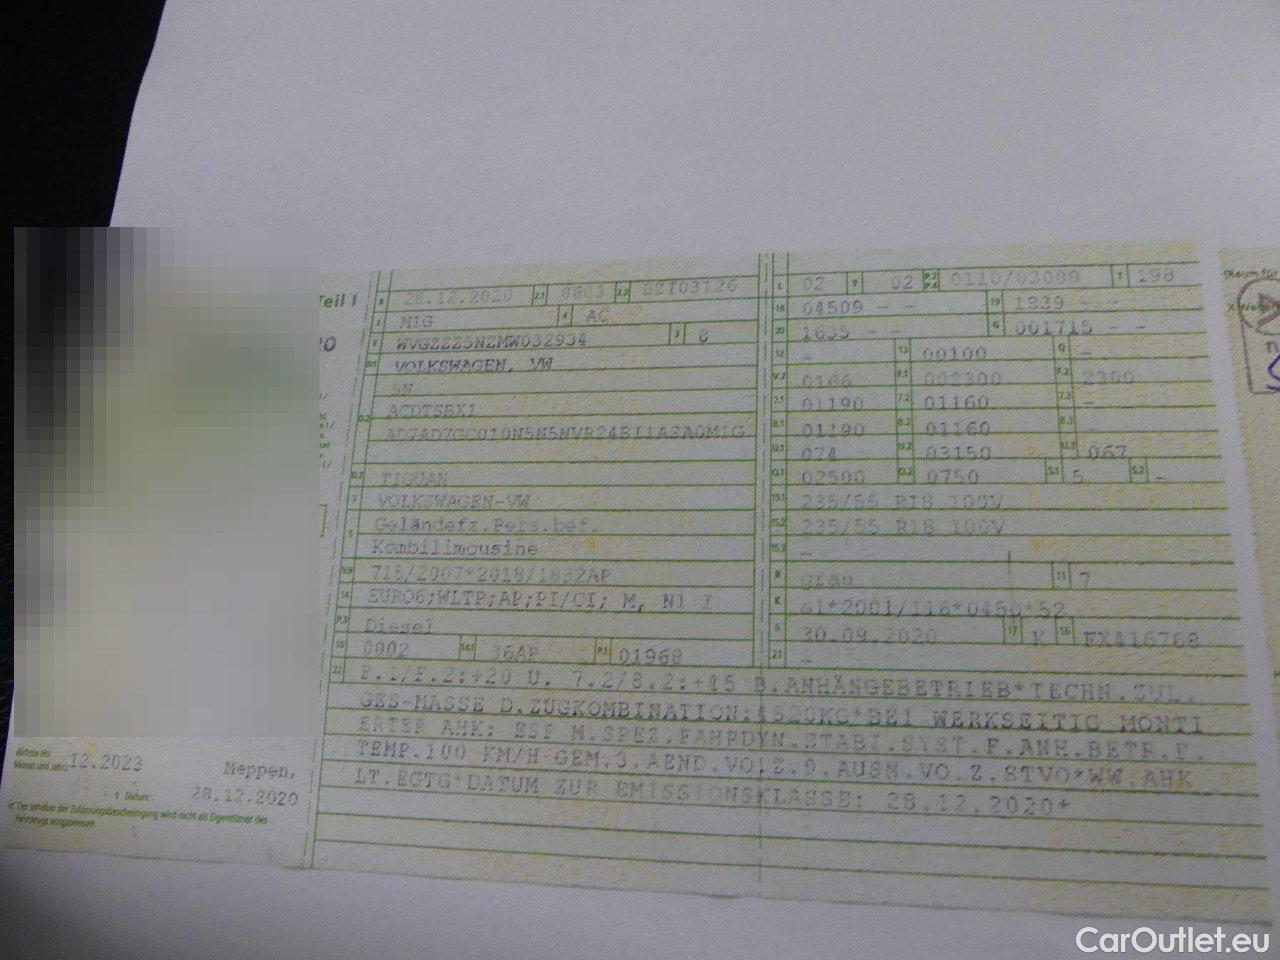 Teil I
B 28.12.2020 2.1 0603 2.2 BZT03126
J M1G 4 AC
E WVGZZZ5NZMW032934 3 8
D.1 VOLKSWAGEN, VW
5N
D.2 ACDTSBX1
AD7AD7GC010N5N5NVR24BI1ASA0M1G
D.3 TIGUAN
2 VOLKSWAGEN-VW
5 Geländefz.Pers.bef.
Kombilimousine
V.9 715/2007*2018/1832AP
14 EURO6;WLTP;AP;PI/CI; M, N1 I
P.3 Diesel
10 0002 14.1 36AP P.1 01968
L 02 9 02 P.2 P.4 0110/03000 T 198
18 04509 - - 19 1839 - -
20 1635 - - G 001715 - -
12 - 13 00100 Q -
V.7 0166 F.1 002300 F.2 2300
7.1 01190 7.2 01160 7.3 -
8.1 01190 8.2 01160 8.3 -
U.1 074 U.2 03150 U.3 067
O.1 02500 O.2 0750 S.1 5 S.2 -
15.1 235/55 R18 100V
15.2 235/55 R18 100V
15.3 -
R grau 11 7
K e1*2001/116*0450*52
6 30.09.2020 17 K 16 FX416768
21 -
22 F.1/F.2:+20 U. 7.2/8.2:+45 B.ANHÄNGEBETRIEB*TECHN.ZUL.
GES-MASSE D.ZUGKOMBINATION:4820KG*BEI WERKSEITIG MONTI
ERTER AHK: ESP M.SPEZ.FAHRDYN.STABI.SYST.F.ANH.BETR.F.
TEMP.100 KM/H GEM.3.AEND.VO.Z.9.AUSN.VO.Z.STVO*WW.AHK
LT.EGTG*DATUM ZUR EMISSIONSKLASSE: 28.12.2020*
Nächste HU
Monat und Jahr 12.2023 Meppen,
Datum: 28.12.2020
Der Inhaber der Zulassungsbescheinigung wird nicht als Eigentümer des
Fahrzeugs ausgewiesen.
CarOutlet.eu